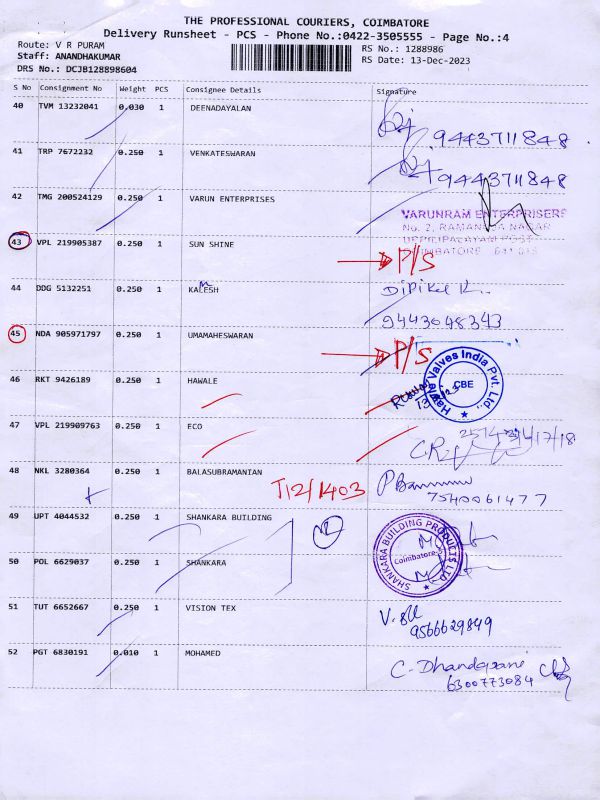 THE PROFESSIONAL COURIERS, COIMBATORE
Delivery Runsheet - PCS - Phone No.:0422-3505555 - Page No.:4
Route: V R PURAM
RS No.: 1288986
Staff: ANANDHAKUMAR
RS Date: 13-Dec-2023
DRS No.: DCJB128898604
S No Consignment No Weight PCS Consignee Details Signature
40 TVM 13232041 0.030 1 DEENADAYALAN
9443711848
41 TRP 7672232 0.250 1 VENKATESWARAN
9443711848
42 TMG 200524129 0.250 1 VARUN ENTERPRISES
VARUNRAM ENTERPRISERS
No. 2, RAMANUJA NAGAR
UPPILIPALAYAM POST
COIMBATORE - 641 015
43 VPL 219905387 0.250 1 SUN SHINE P/S
44 DDG 5132251 0.250 1 KALESH Dipikel K..
9443048343
45 NDA 905971797 0.250 1 UMAMAHESWARAN P/S
46 RKT 9426189 0.250 1 HAWALE
Hawle Valves India Pvt. Ltd.,
CBE
47 VPL 219909763 0.250 1 ECO
48 NKL 3280364 0.250 1 BALASUBRAMANIAN T12/1403
7540061477
49 UPT 4044532 0.250 1 SHANKARA BUILDING
SHANKARA BUILDING PRODUCTS LTD
Coimbatore
50 POL 6629037 0.250 1 SHANKARA
51 TUT 6652667 0.250 1 VISION TEX
9566629849
52 PGT 6830191 0.010 1 MOHAMED C. Dhandapani
6300773084